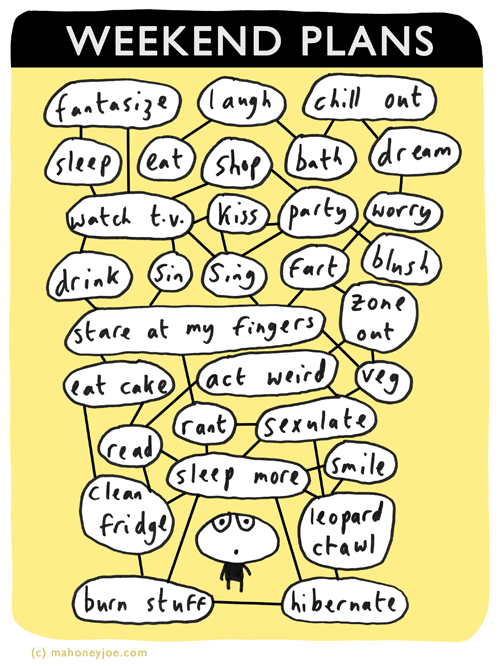 WEEKEND PLANS
fantasize
laugh
chill out
sleep
eat
shop
bath
dream
watch t.v.
kiss
party
worry
drink
sin
sing
fart
blush
stare at my fingers
zone
out
eat cake
act weird
veg
rant
sexulate
read
sleep more
smile
clean
fridge
leopard
crawl
burn stuff
hibernate
(c) mahoneyjoe.com